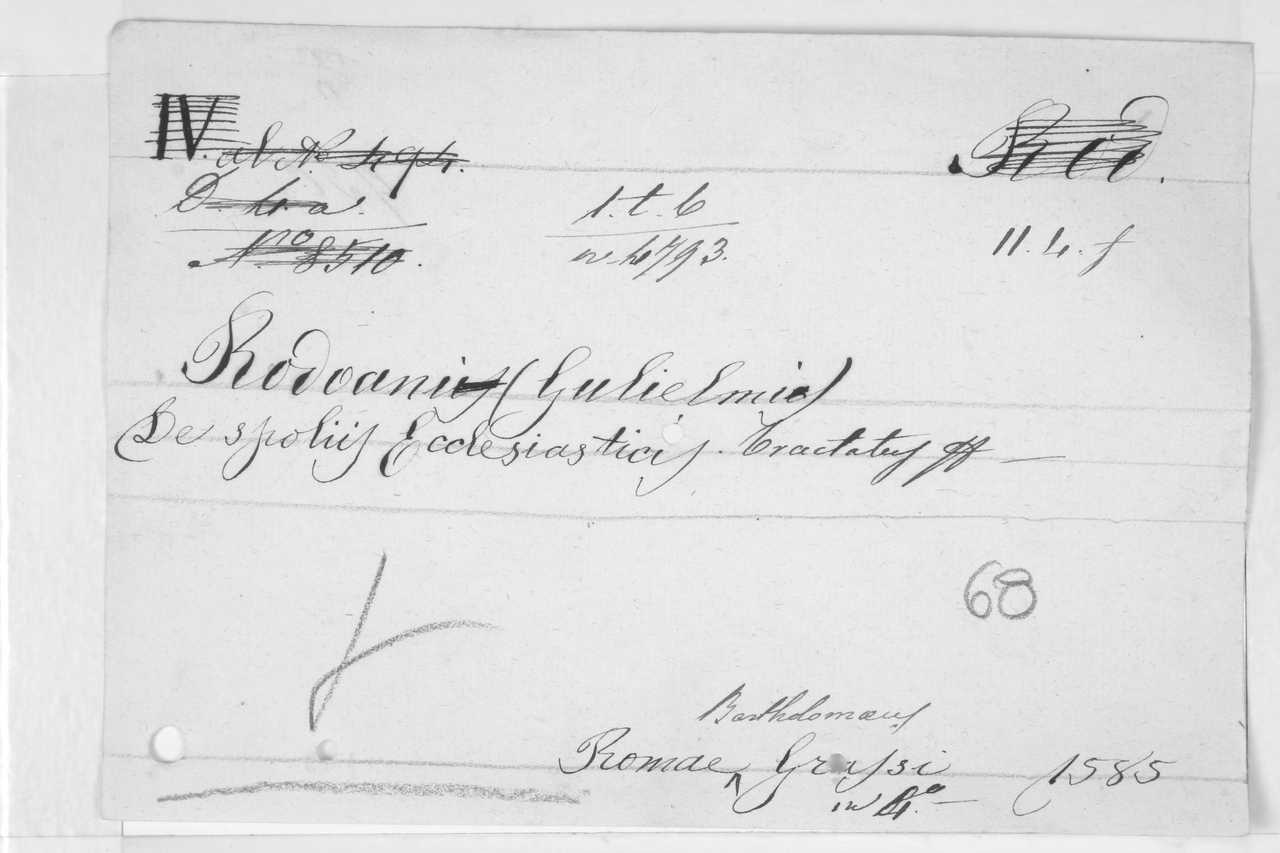 IV. ab No 494.
D. h. a.
1. t. 6
Nro 8510.
n. 4793.
11. 4. f
Rodoanis (Gulielmi)
De spoliis Ecclesiasticis. Tractatus
68
Bartholomaeus
Romae Grassi 1585
in 4o